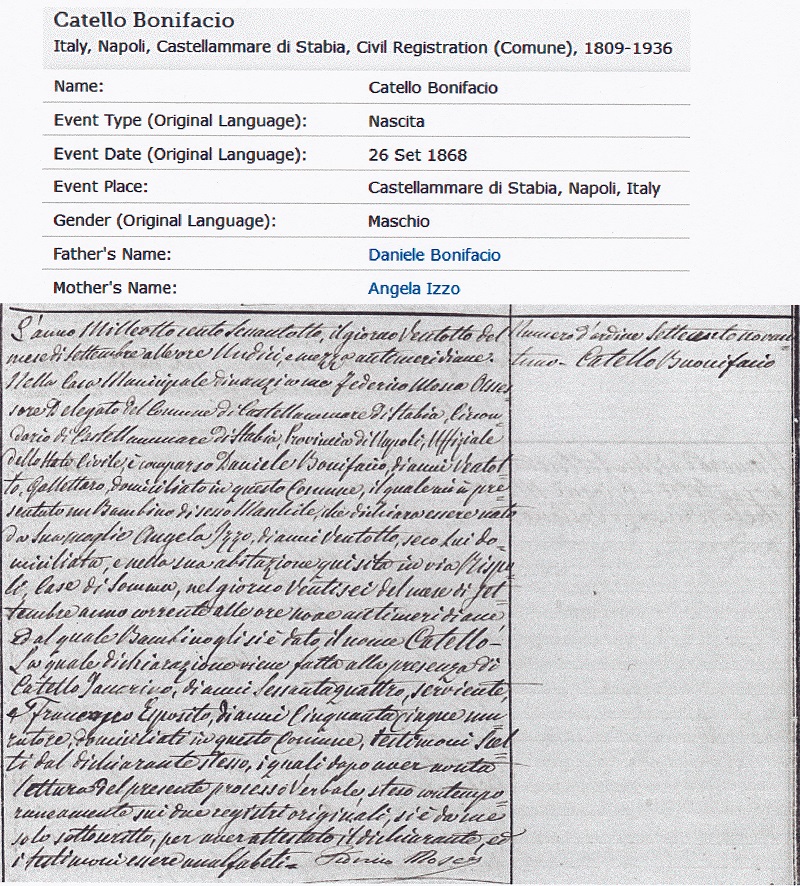 Catello Bonifacio
Italy, Napoli, Castellammare di Stabia, Civil Registration (Comune), 1809-1936
Name: Catello Bonifacio
Event Type (Original Language): Nascita
Event Date (Original Language): 26 Set 1868
Event Place: Castellammare di Stabia, Napoli, Italy
Gender (Original Language): Maschio
Father's Name: Daniele Bonifacio
Mother's Name: Angela Izzo
L'anno Milleottocento sessantotto, il giorno Ventotto del
mese di Settembre alle ore Undici, e mezzo antimeridiane.
Nella Casa Municipale dinanzi a me Federico Mosca Asses=
sore Delegato del Comune di Castellammare di Stabia, Circon=
dario di Castellammare di Stabia, Provincia di Napoli, Uffiziale
dello Stato Civile, è comparso Daniele Bonifacio, di anni Ventot=
to, Gallettaro, domiciliato in questo Comune, il quale mi à pre=
sentato un Bambino di sesso Maschile, che dichiara essere nato
da sua moglie Angela Izzo, di anni Ventotto, seco lui do=
miciliata, e nella sua abitazione qui sita in via Rispo=
li, Case di Somma, nel giorno Ventisei del mese di Set=
tembre anno corrente alle ore nove antimeridiane
Ed al quale Bambino gli si è dato il nome Catello-
La quale dichiarazione viene fatta alla presenza di
Catello di anni Sessantaquattro, serviente,
e Francesco Esposito, di anni Cinquantacinque mu=
ratore, domiciliati in questo Comune, testimoni Scel=
ti dal dichiarante stesso, i quali dopo aver avuta
lettura del presente processo Verbale steso contempo=
raneamente sui due registri originali, si è da me
solo sottoscritto, per aver attestato il dichiarante, ed
i testimoni essere analfabeti= Federico Mosca
Numero d'ordine Settecento novan=
tuno- Catello Buonifacio